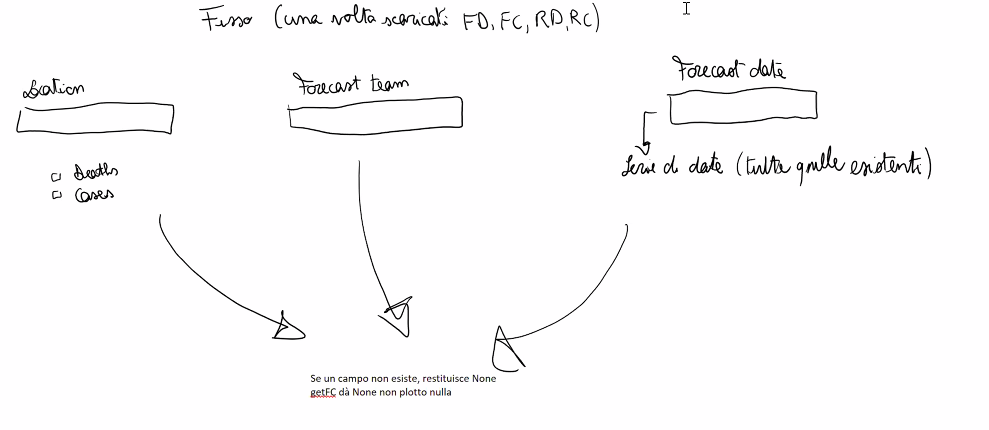 Fisso (una volta scaricati FD, FC, RD, RC)
Location
Forecast team
Forecast date
Deaths
Cases
Serie di date (tutte quelle esistenti)
Se un campo non esiste, restituisce None
getFC dà None non plotto nulla